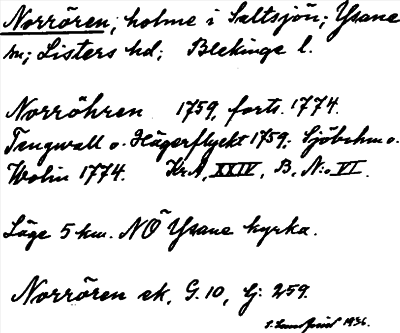 Norrören, holme i Saltsjön; Ysane
sn; Listers hd; Blekinge l.
Norröhren 1759, forts. 1774.
Tengwall o. Hägerflyckt 1759; Sjöbohm o.
Wolin 1774. KrA, XXIV, B, N:o VI.
Läge 5 km. NÖ Ysane kyrka.
Norrören ek, G. 10, bj: 259.
1936.